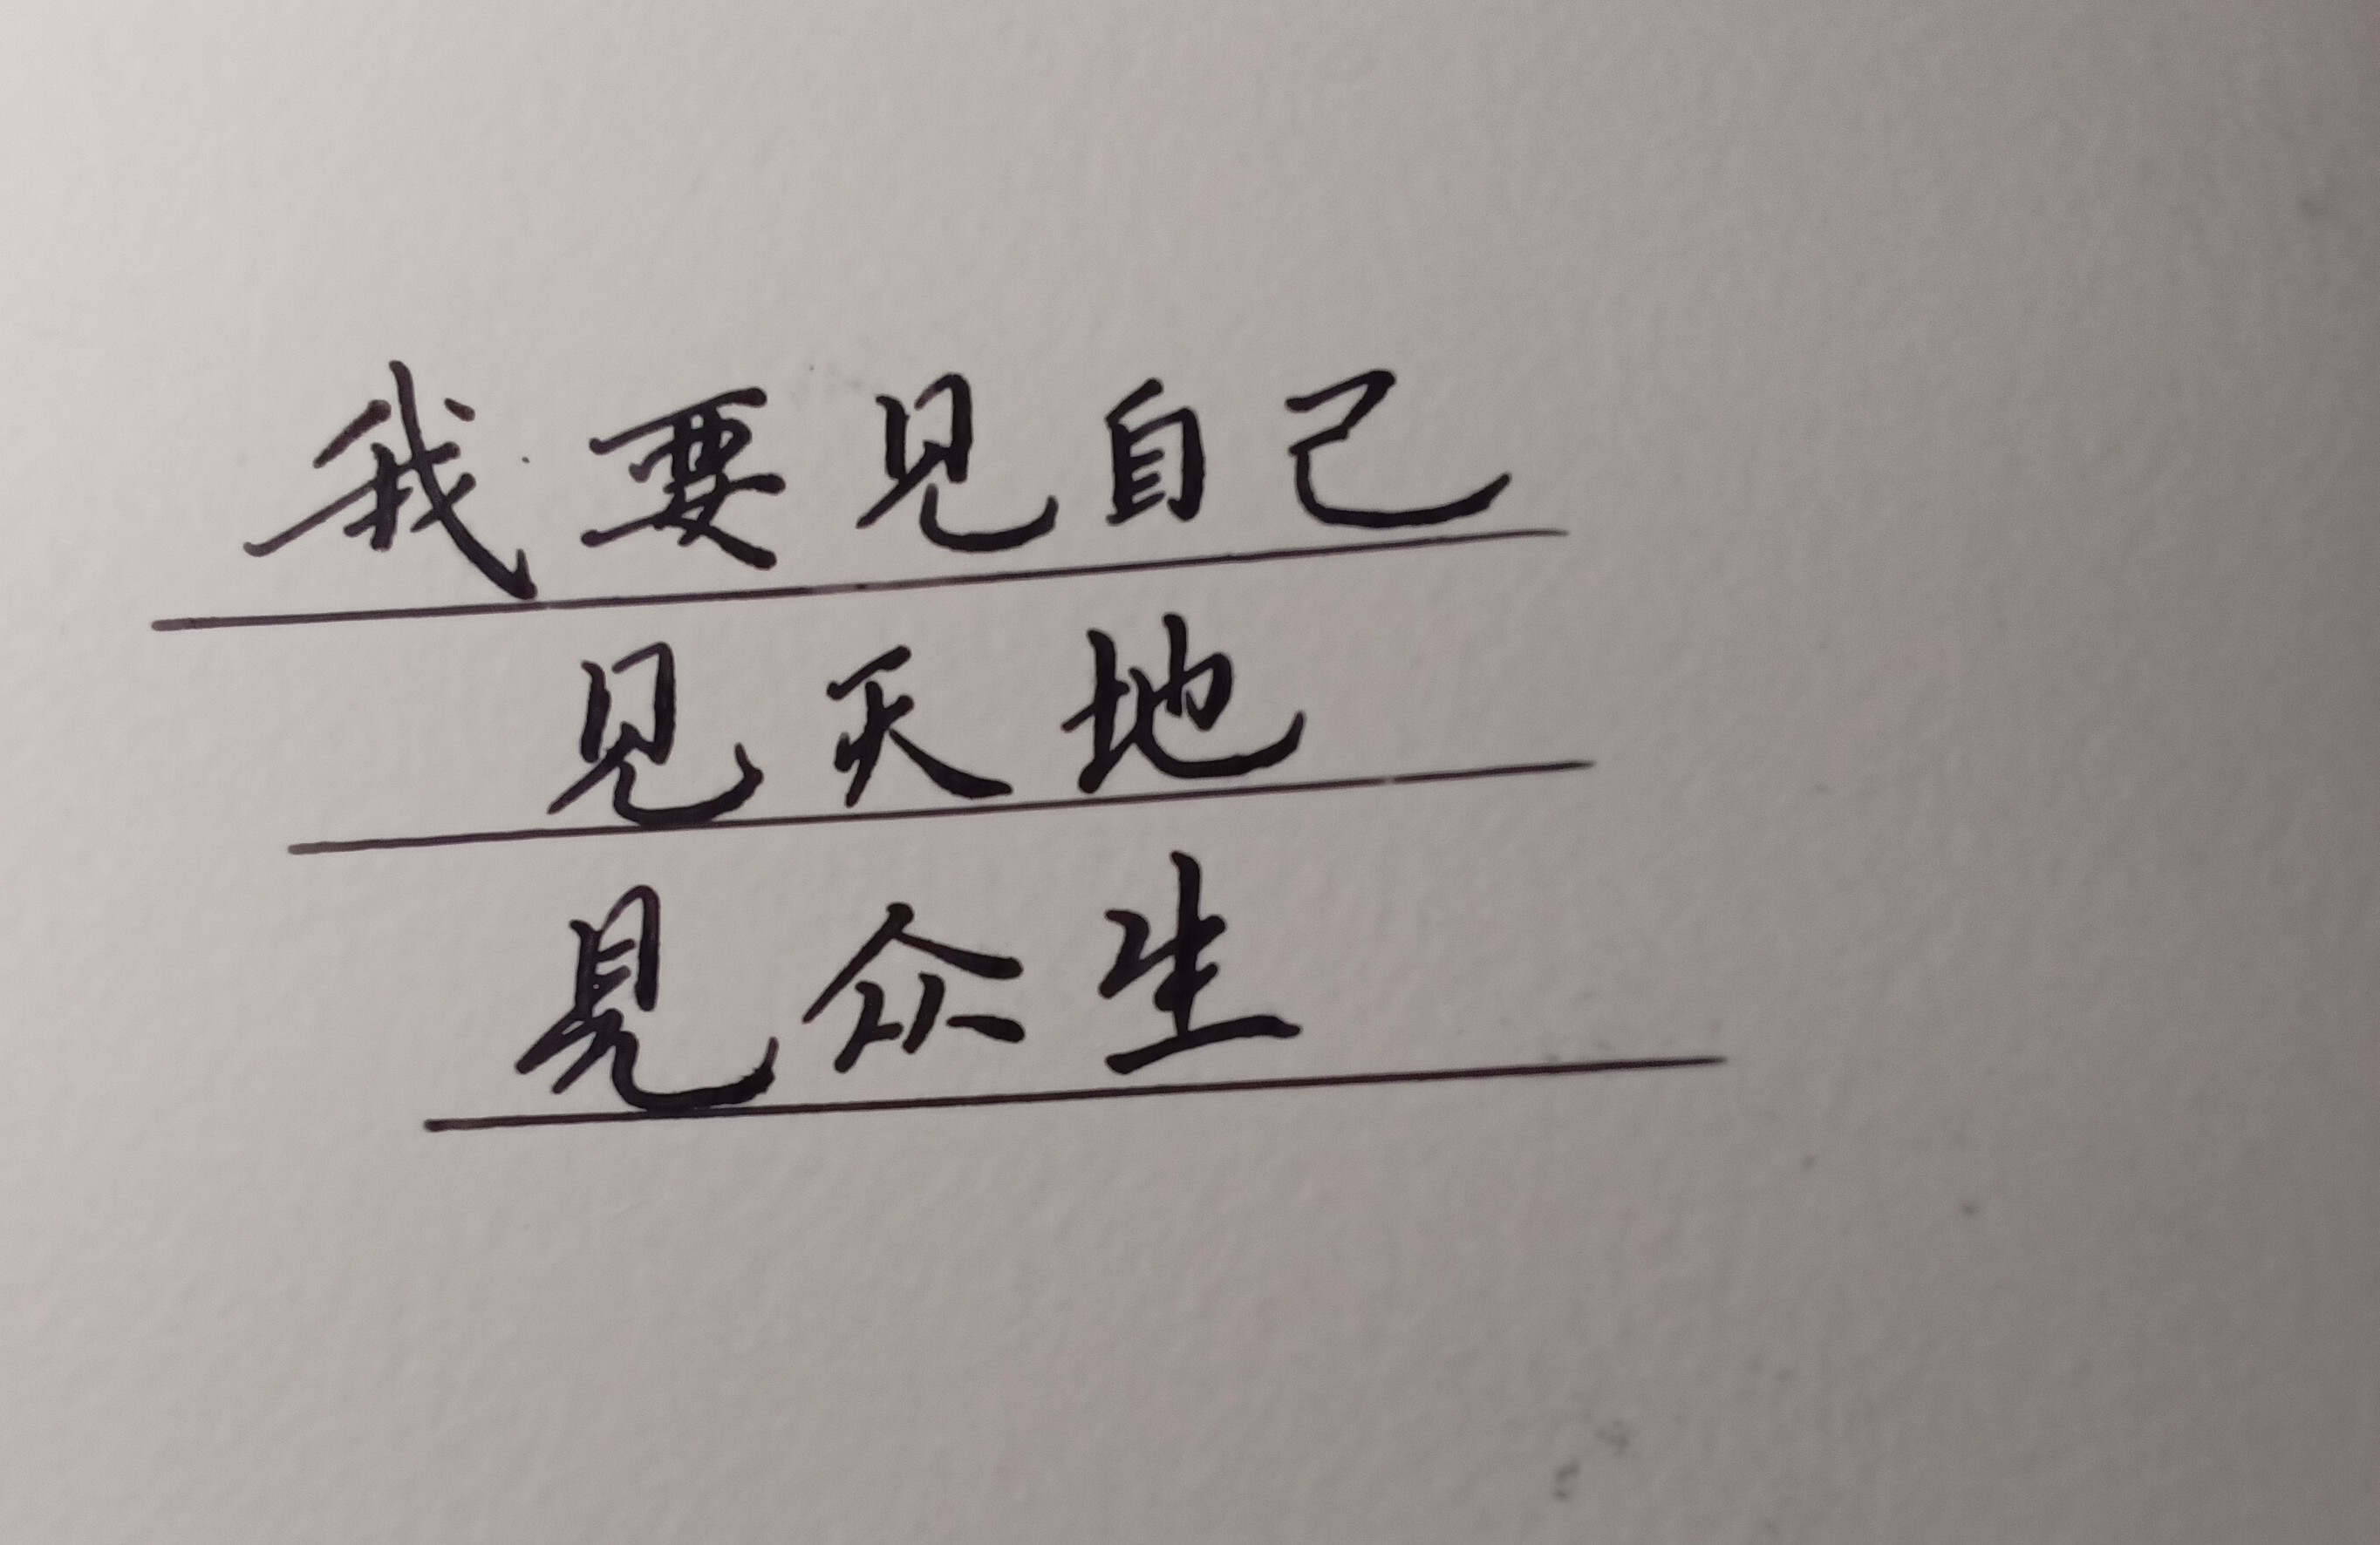 我要见自己
见天地
見众生